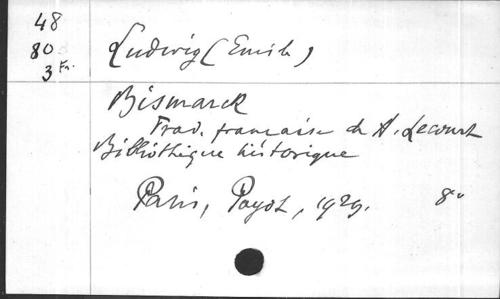 48
80
3 Fr.
Ludwig (Emil)
Bismarck
Trad. française de A. Lecourt
Bibliothèque historique
Paris, Payot, 1929. 8°